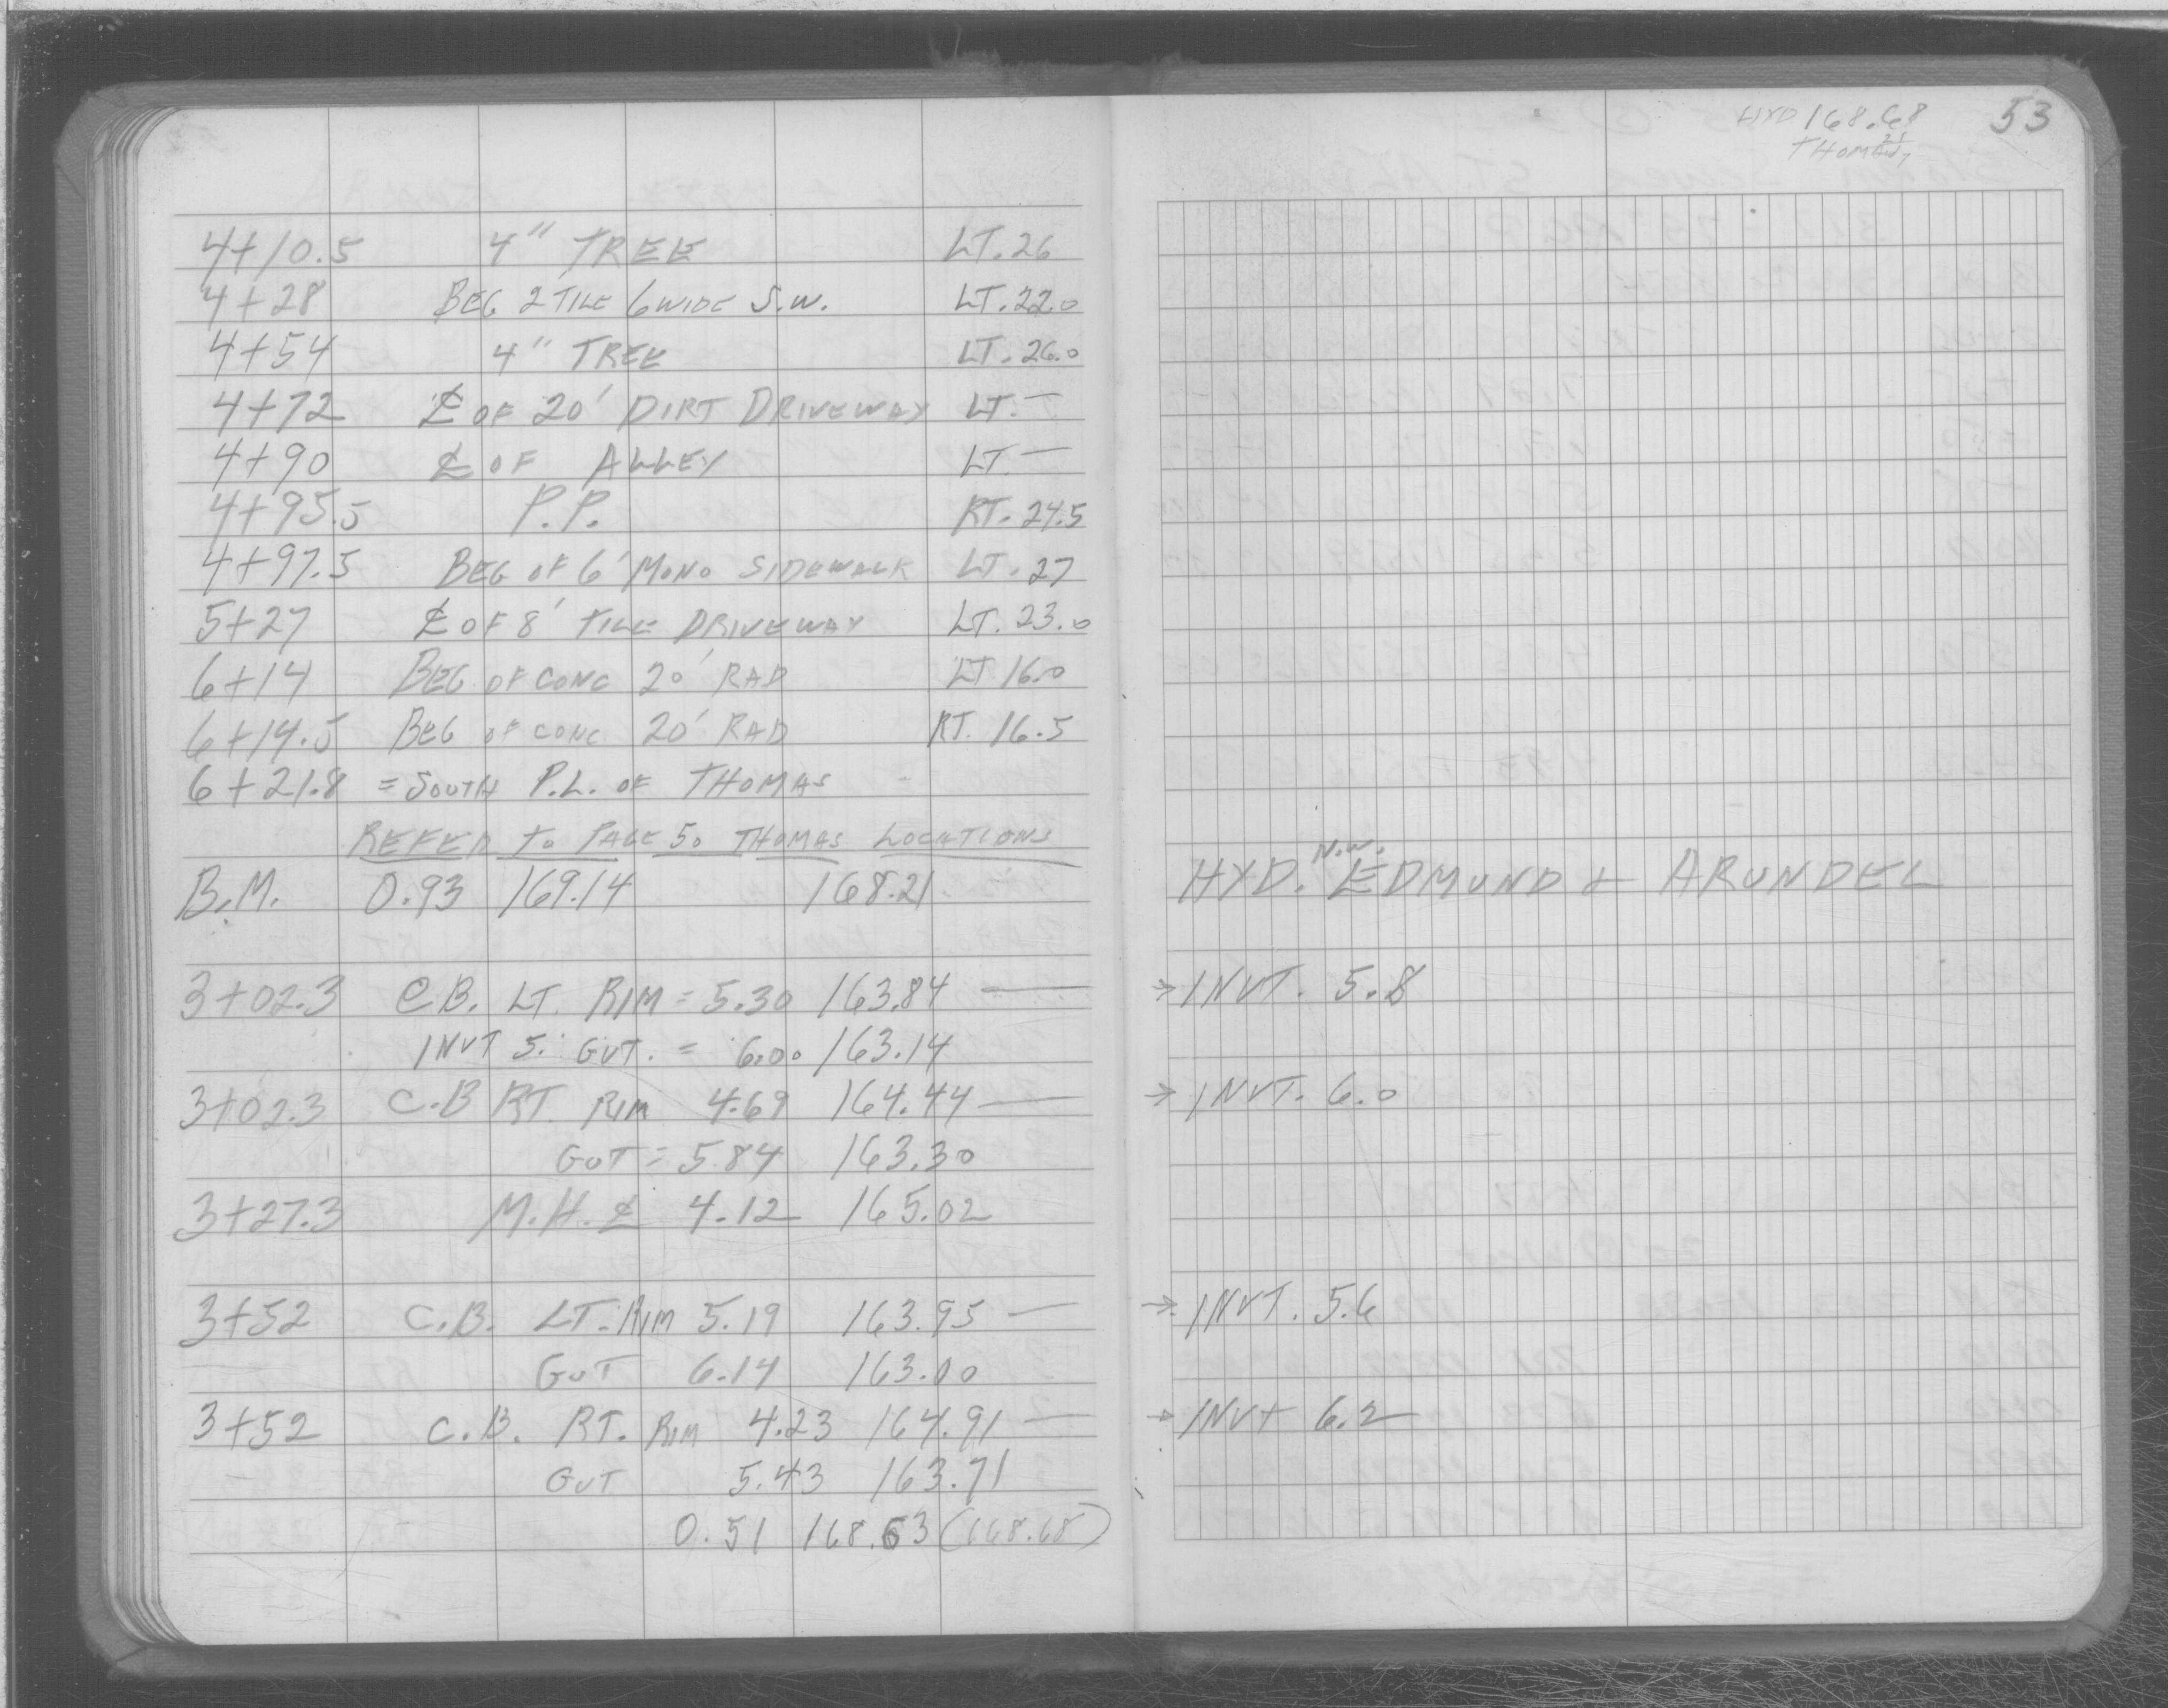 4+10.5 4" TREE LT. 26
4+28 BEG 2 TILE 6 WIDE S.W. LT. 22.0
4+54 4" TREE LT. 26.0
4+72 ℄ OF 20' DIRT DRIVEWAY LT. —
4+90 ℄ OF ALLEY LT. —
4+95.5 P.P. RT. 24.5
4+97.5 BEG OF 6' MONO SIDEWALK LT. 27
5+27 ℄ OF 8' TILE DRIVEWAY LT. 23.0
6+14 BEG OF CONC 20' RAD LT 16.0
6+14.5 BEG OF CONC 20' RAD RT. 16.5
6+21.8 = SOUTH P.L. OF THOMAS
REFER TO PAGE 50 THOMAS LOCATIONS
B.M. 0.93 169.14 168.21
3+02.3 C.B. LT. RIM = 5.30 163.84 —
INVT 5. GUT. = 6.00 163.14
3+02.3 C.B RT. RIM 4.69 164.44 —
GUT = 5.84 163.30
3+27.3 M.H. ℄ 4.12 165.02
3+52 C.B. LT. RIM 5.19 163.95 —
GUT 6.14 163.00
3+52 C.B. RT. RIM 4.23 164.91 —
GUT 5.43 163.71
0.51 168.63 (168.68)
HYD 168.68 53
THOMAS
HYD. N.W. EDMUND + ARUNDEL
→ INVT. 5.8
→ INVT. 6.0
→ INVT. 5.6
→ INVT 6.2